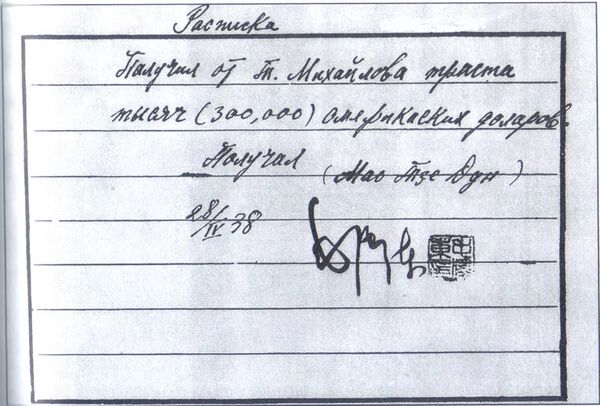 Расписка
Получил от Т. Михайлова триста
тысяч (300,000) америкаских доларов.
Получил (Мао Тзе Дун)
28/IV 38